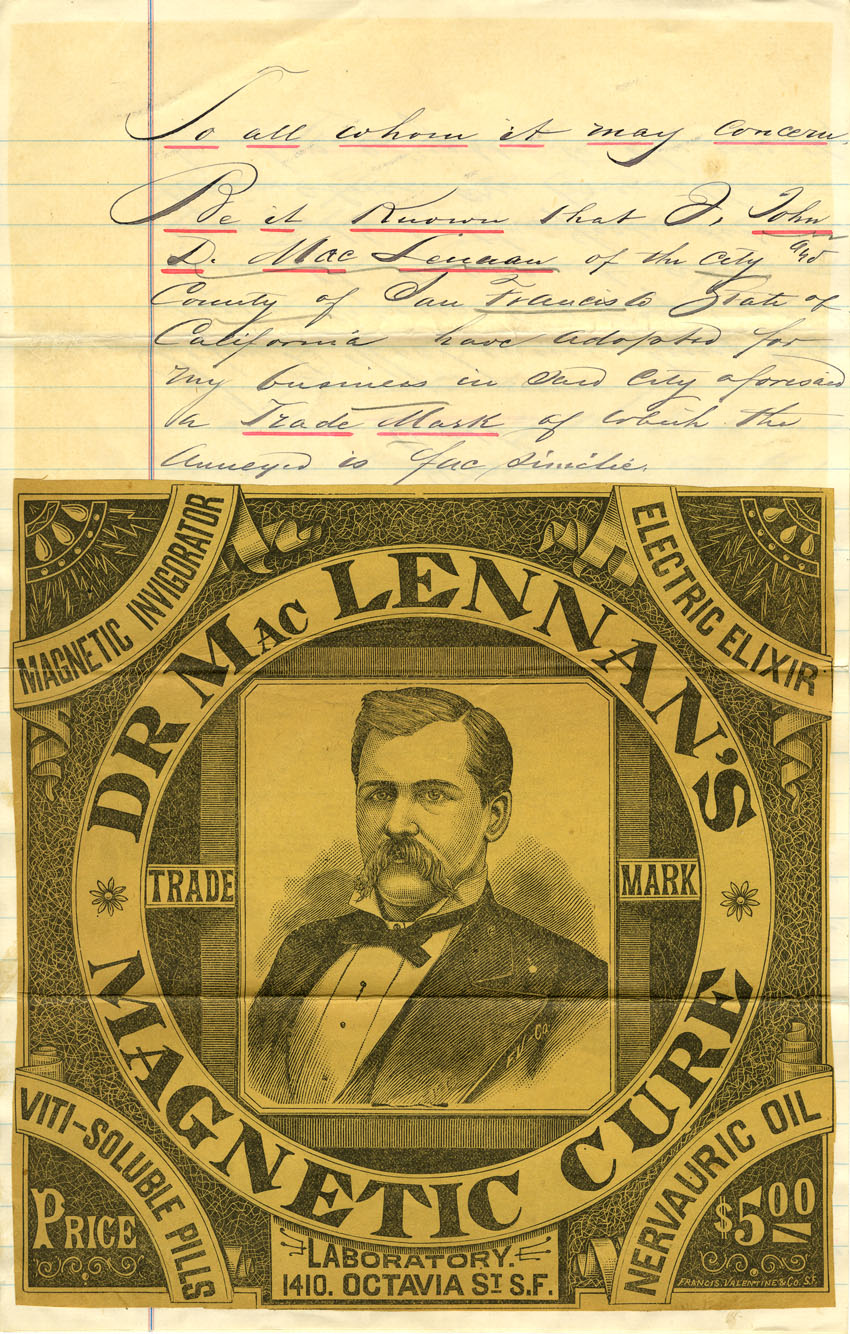 To all whom it may concern.
Be it Known that I, John
D. Mac Lennan of the City and
County of San Francisco State of
California have adopted for
my business in said City aforesaid
a Trade Mark of which the
Annexed is fac simile.
MAGNETIC INVIGORATOR
ELECTRIC ELIXIR
DR MAC LENNAN'S
TRADE MARK
MAGNETIC CURE
VITI-SOLUBLE PILLS
NERVAURIC OIL
PRICE
$5.00
LABORATORY.
1410. OCTAVIA ST S.F.
FRANCIS, VALENTINE & CO. S.F.